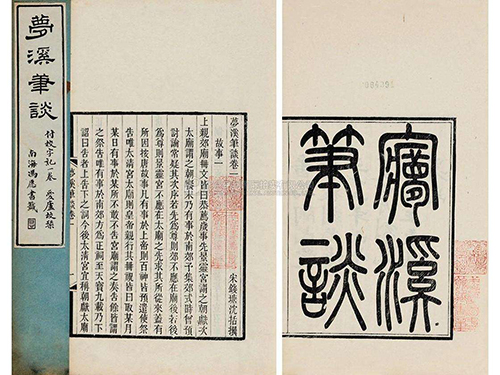 夢溪筆談
付校字記一卷 愛廬校栞
南海馮應書籤
夢溪筆談卷一
宋錢塘沈括撰
故事一
上親郊廟冊文皆曰恭薦歲事先景靈宮謂之朝獻次
太廟謂之朝饗末乃有事於南郊予集郊式時曾預
討論常疑其次序若先為尊則郊不應在廟後若後
為尊則景靈宮不應在太廟之先求其所從來蓋有
所因按唐故事凡有事於上帝則百神皆預遣使祭
告唯太清宮太廟則皇帝親行其冊祝皆曰取某月
某日有事於某所不敢不告宮廟謂之奏告餘皆謂
之祭告唯有事於南郊方為正祠至天寶九載乃下
詔曰告者上告下之詞今後太清宮宜稱朝獻太廟
夢溪筆談卷一
夢溪
筆談